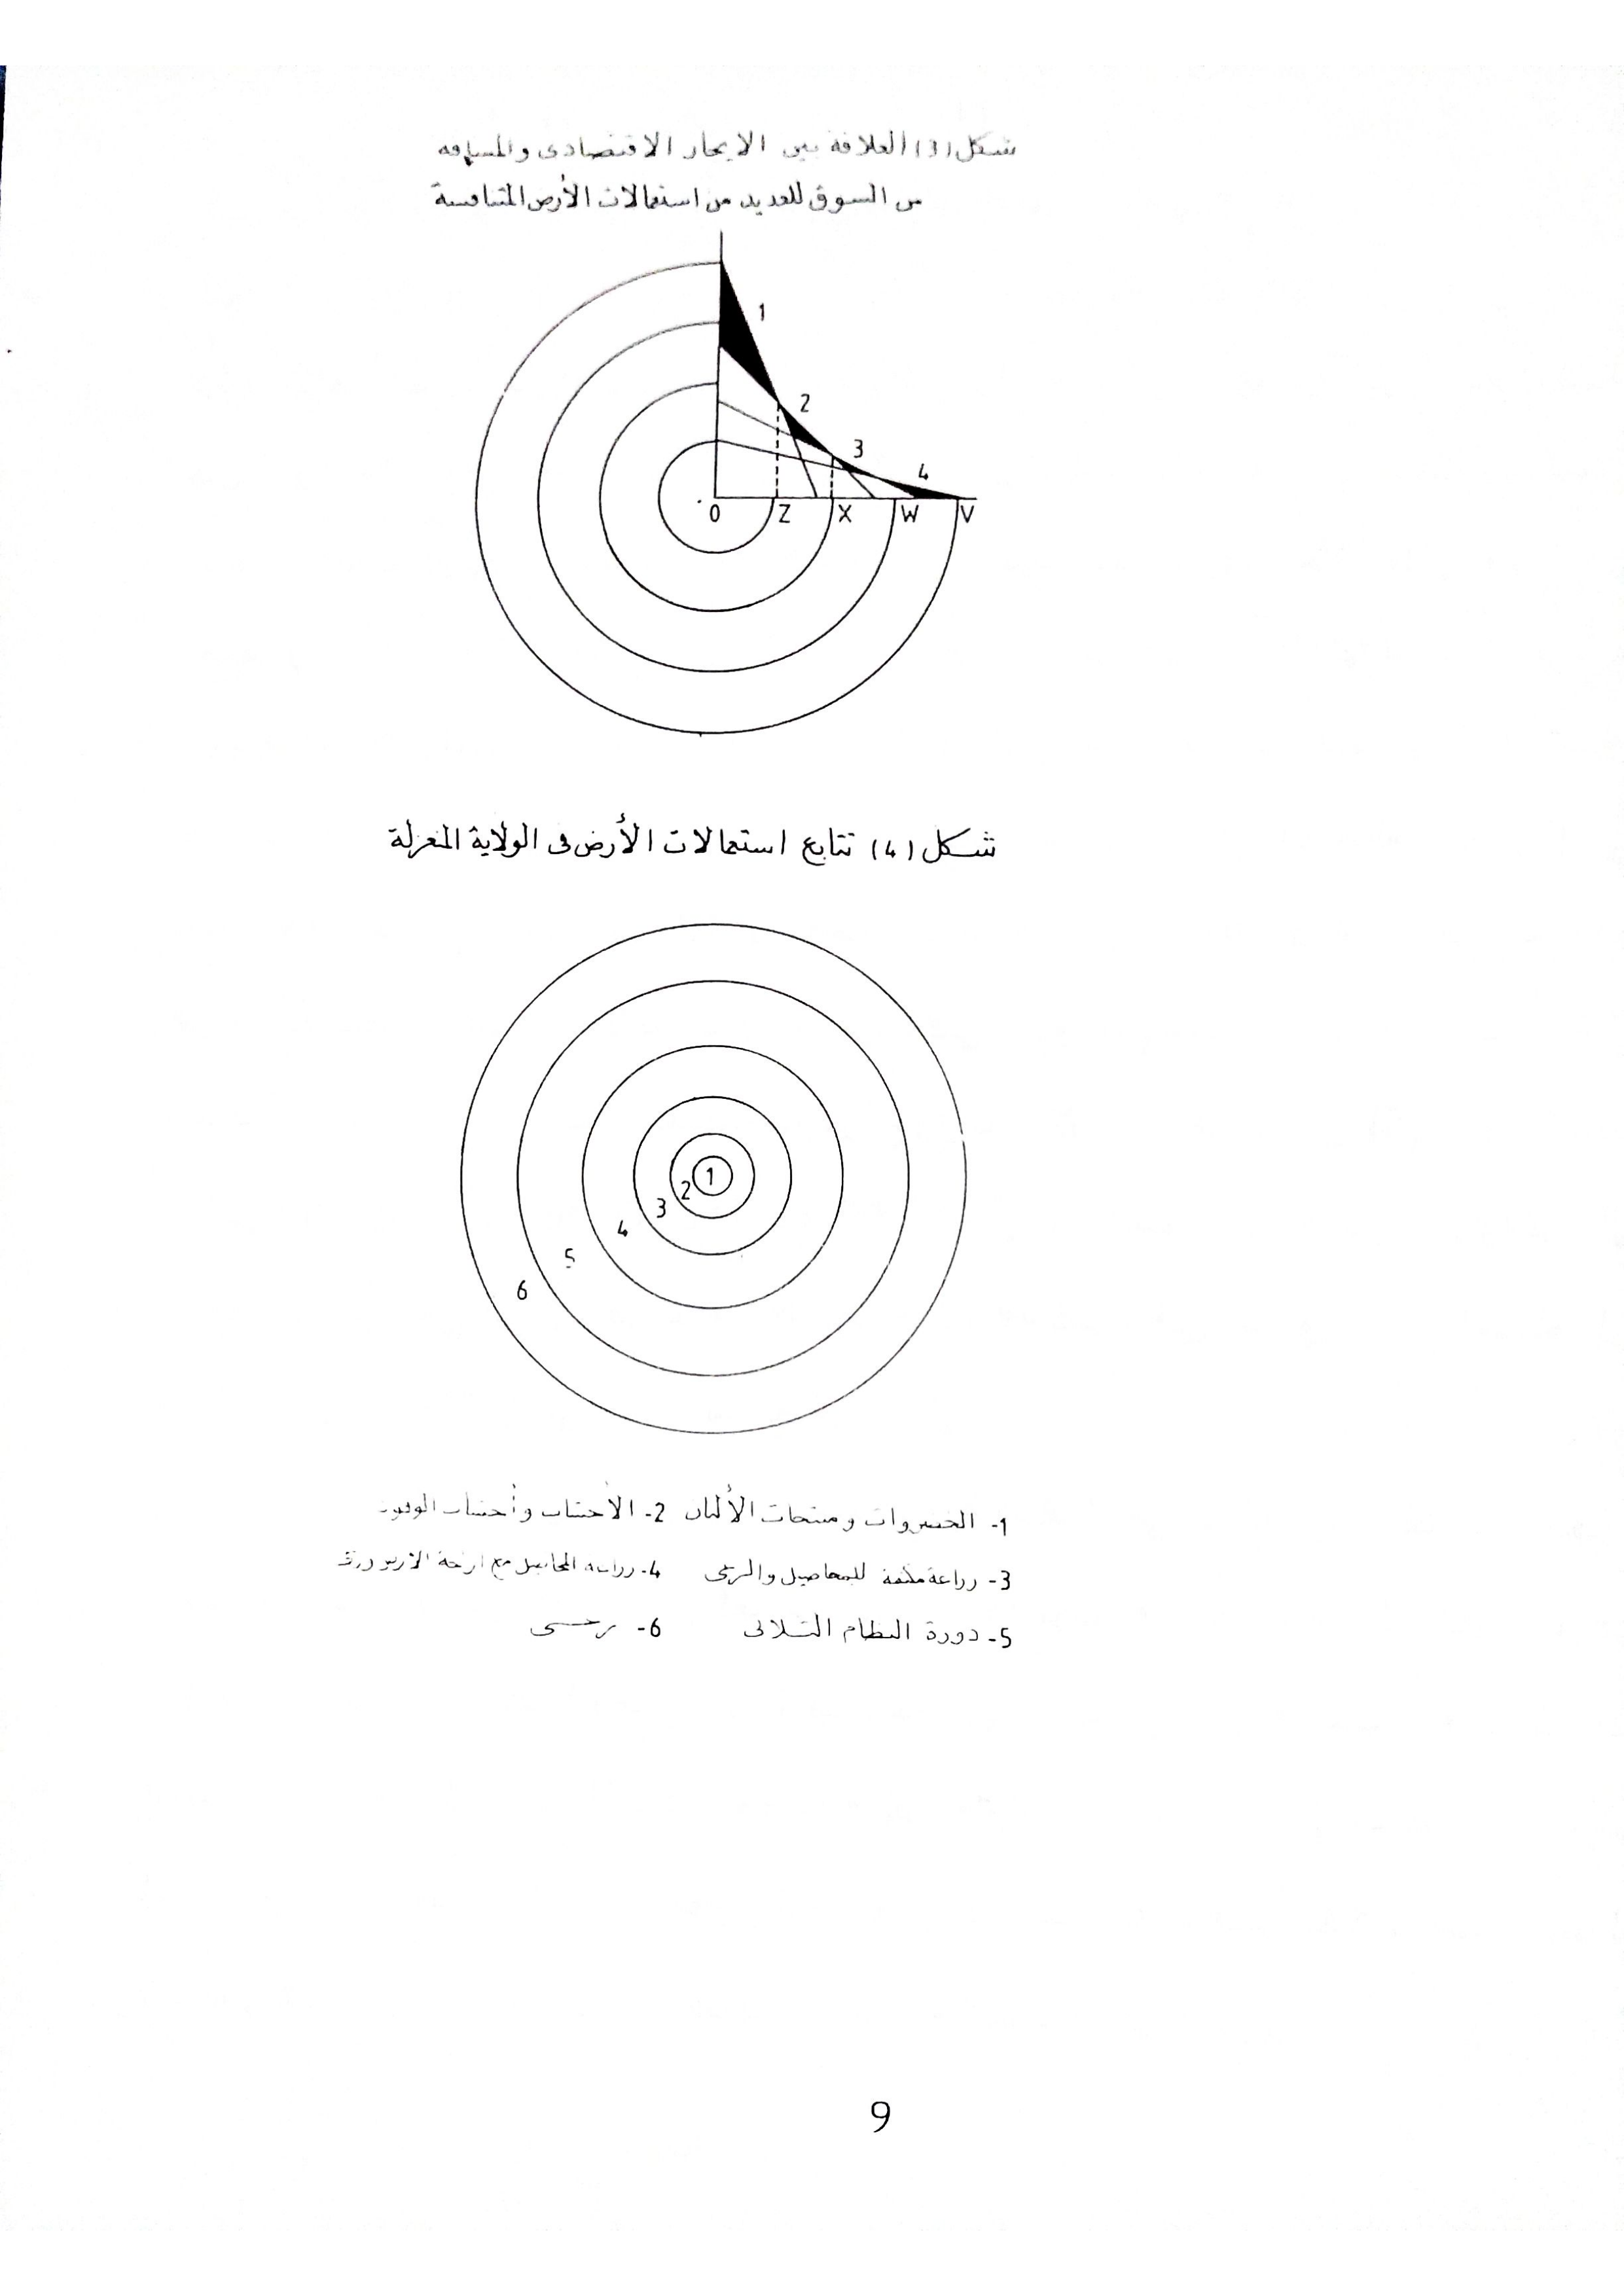 شكل (3) العلاقة بين الايجار الاقتصادى والمسافه
من السوق للعديد من استعمالات الأرض المتنافسة
1
2
3
4
0 Z X W V
شكل (4) تتابع استعمالات الأرض فى الولاية المنعزلة
1
2
3
4
5
6
1- الخضروات ومنتجات الألبان 2- الاخشاب وأخشاب الوقود
3- زراعة مكثفة للمحاصيل والرعى 4- زراعه المحاصيل مع اراحة الارض
5- دورة النظام الثلاثى 6- رعى
9